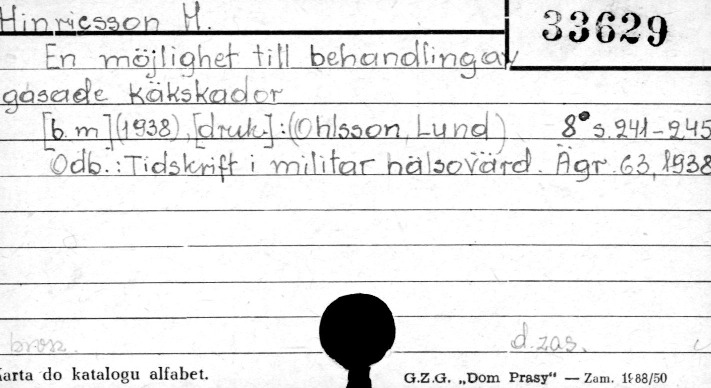 Hinricsson H.
33629
En möjlighet till behandling av
gasade käkskador
[b.m](1938), [druk.]: (Ohlsson, Lund) 8° s. 241-245
Odb.: Tidskrift i militar hälsovärd. Ägr. 63, 1938
brosz. d. zas.
Karta do katalogu alfabet.
G.Z.G. „Dom Prasy" — Zam. 1188/50